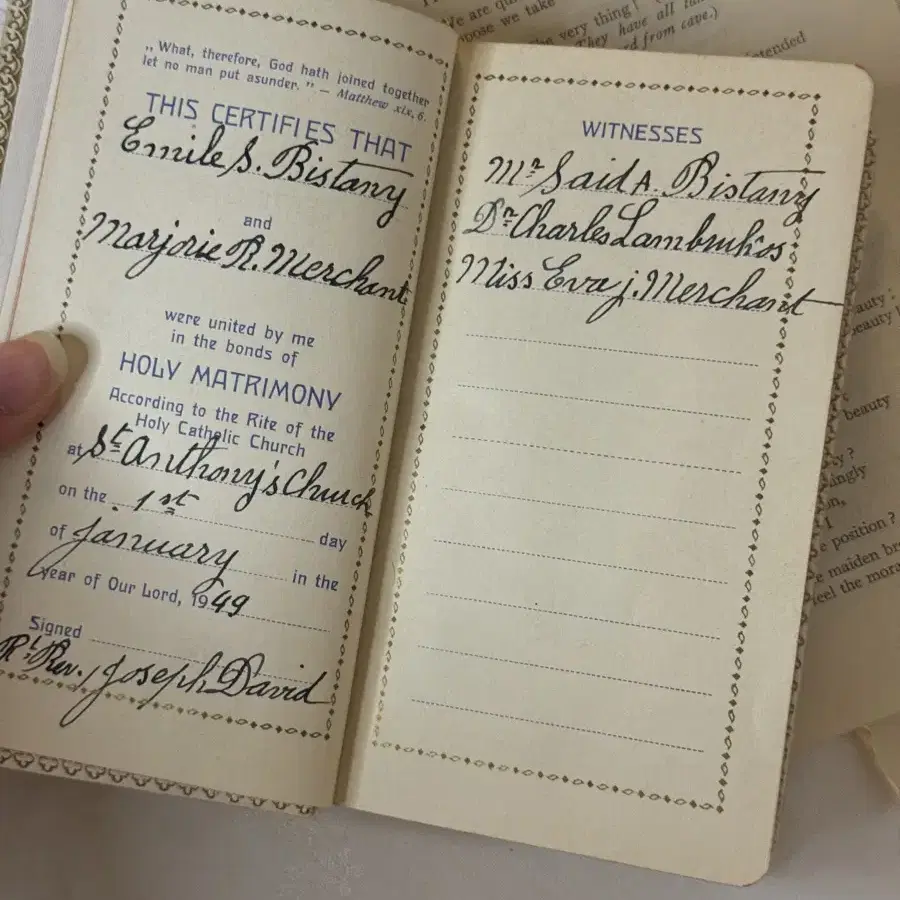 „What, therefore, God hath joined together
let no man put asunder." — Matthew xix, 6.
THIS CERTIFIES THAT
Emile S. Bistany
and
Marjorie R. Merchant
were united by me
in the bonds of
HOLY MATRIMONY
According to the Rite of the
Holy Catholic Church
at St Anthony's Church
on the 1st day
of January in the
year of Our Lord, 1949
Signed
Rt. Rev. Joseph David
WITNESSES
Mr Said A. Bistany
Dr Charles Lambrukos
Miss Eva J. Merchant
We are qu
pose we take
the very thing!
They have all
rd from cave.)
ntended
auty:
beauty
beauty
ty?
ingly
on,
I
e position?
e maiden br
feel the mora